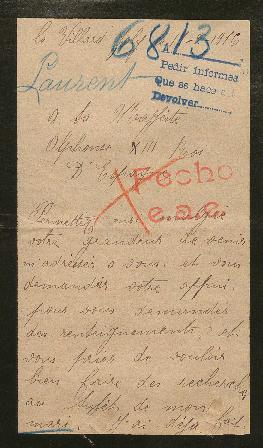 Le Villard 1915
6813
Laurent
A
Pedir informes
Que se hace
Devolver
A Sa
Alphonse XIII Roi
D'Espagne
Fecho
e.a.c.
Permettez moi malgré
votre grandeur de venir
m'adresser a vous et vous
demander votre appui
pour vous demander
des rensegnements et
vous prier de vouloir
bien faire des recherches
au sujet de mon
mari J'ai déjà fait